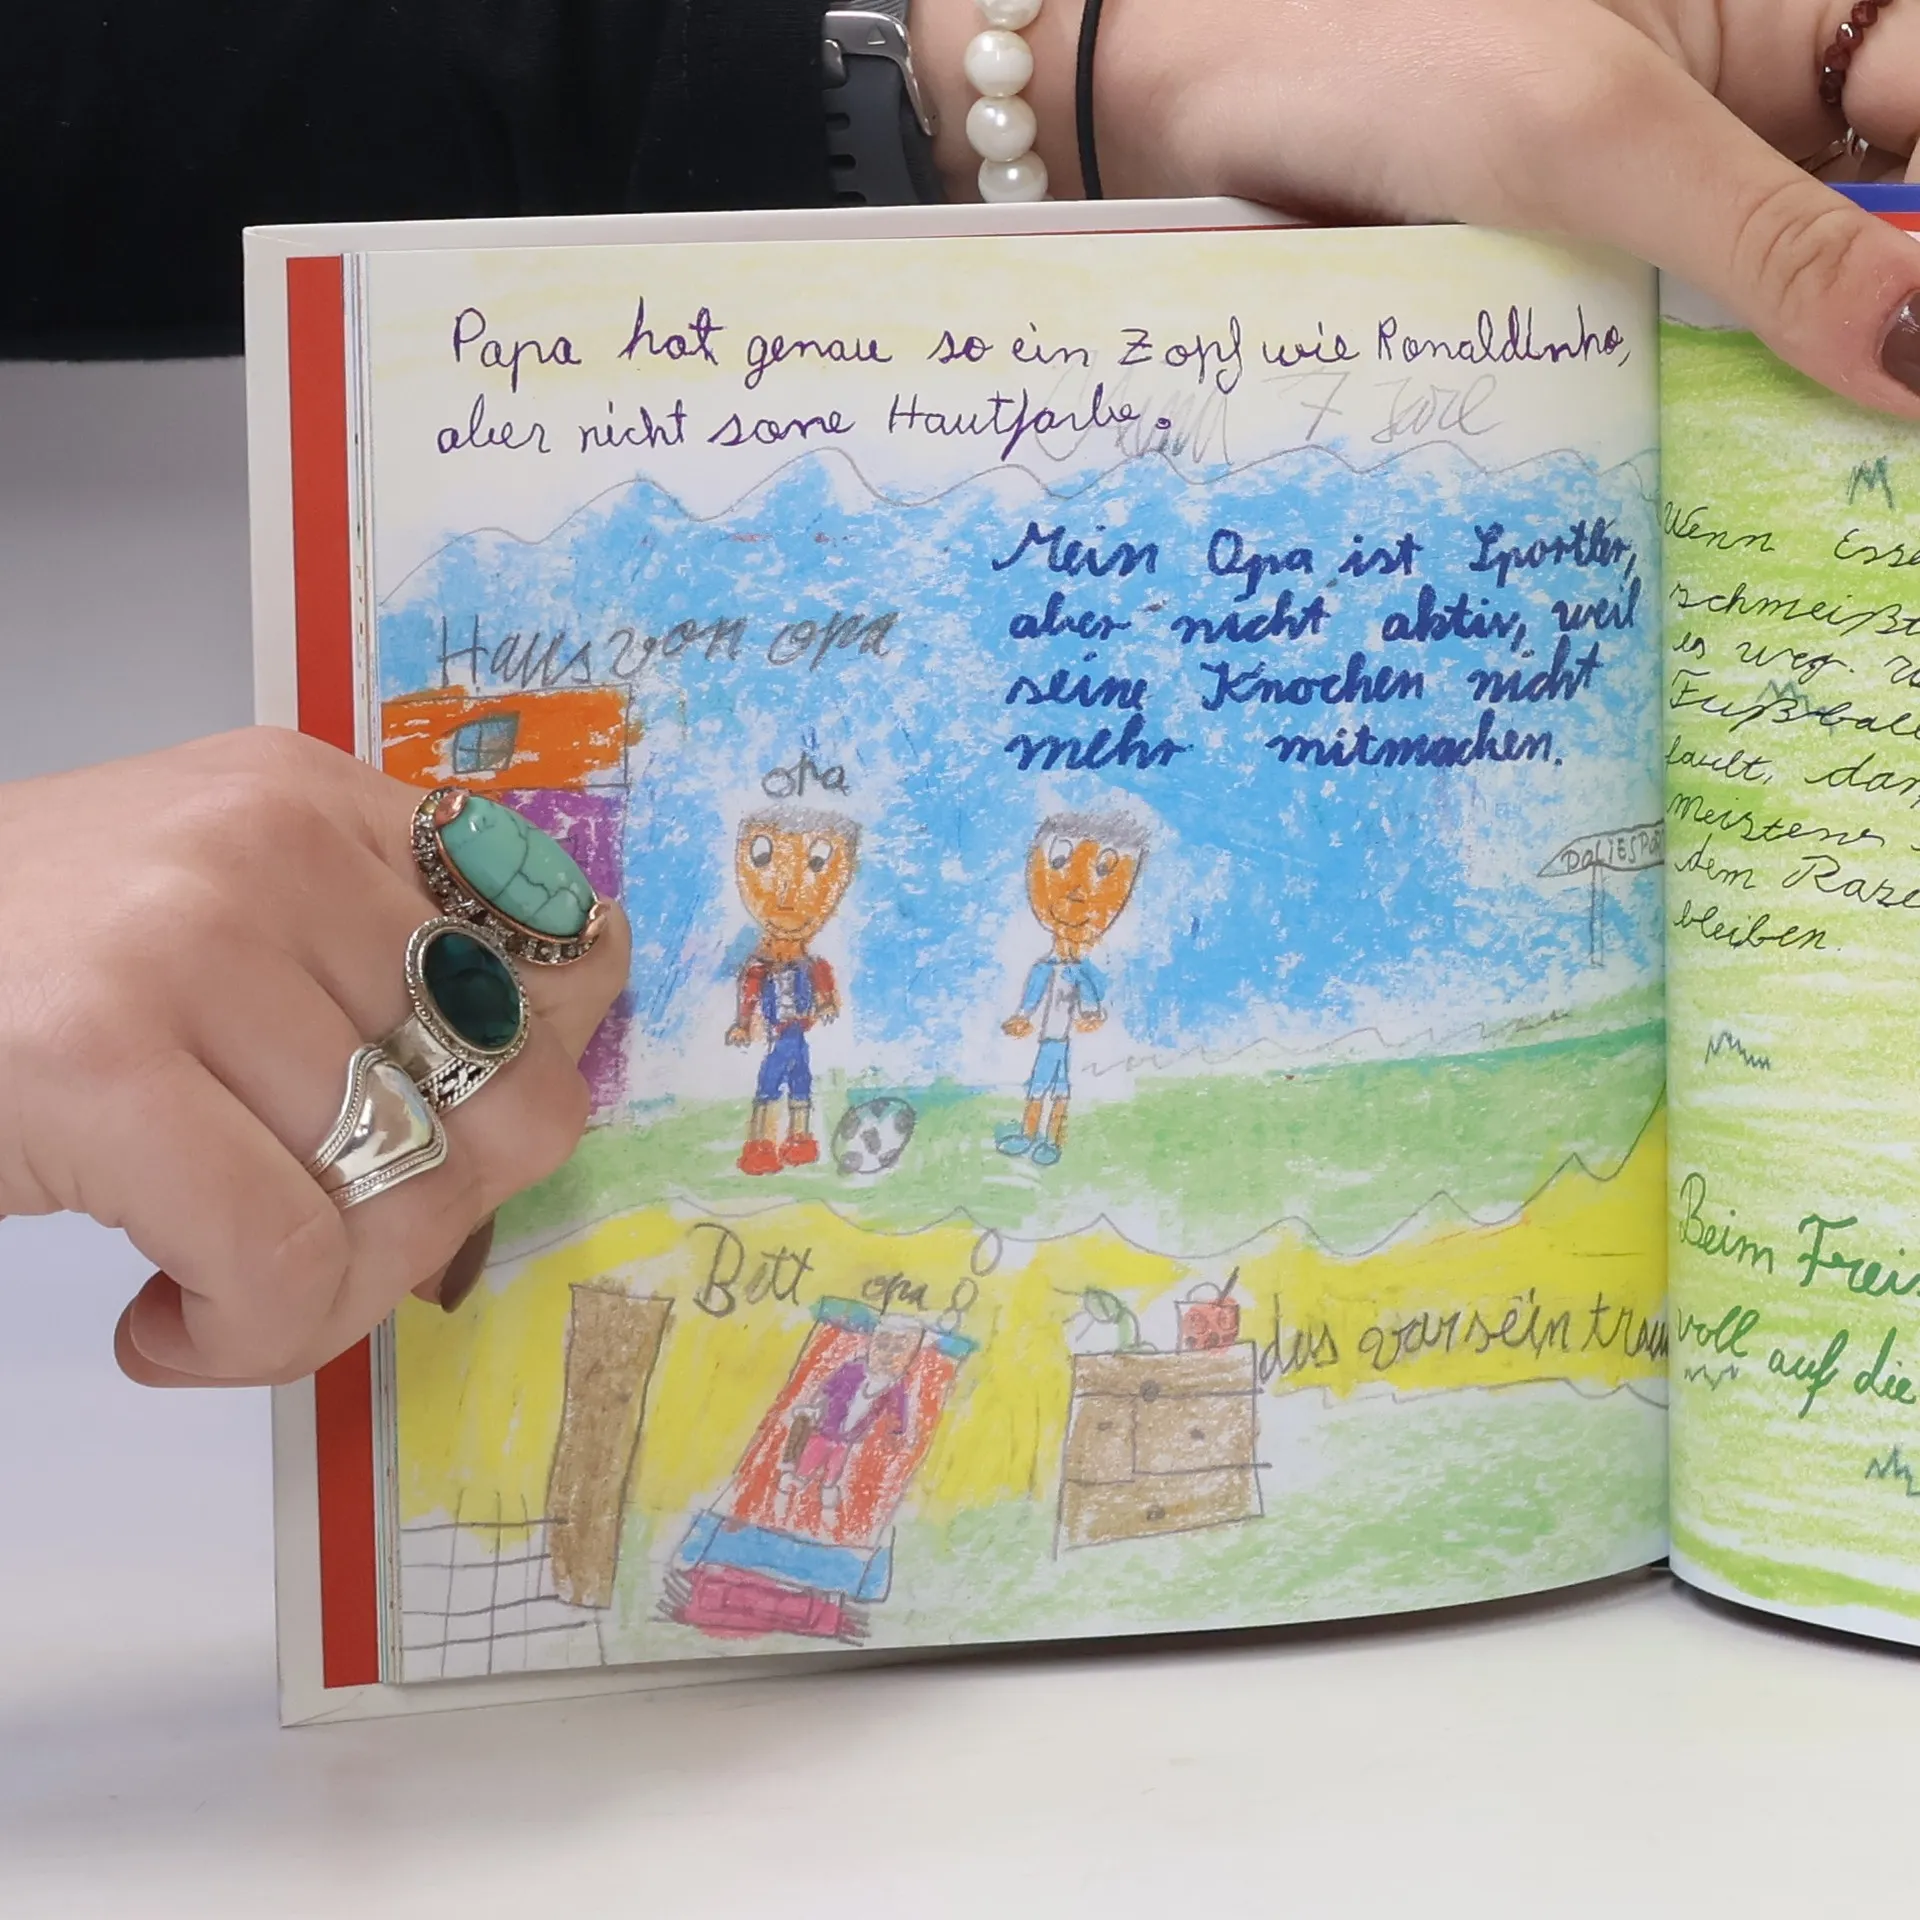 Papa hat genau so ein Zopf wie Ronaldinho,
aber nicht sone Hautfarbe.
7
Mein Opa ist Sportler,
aber nicht aktiv, weil
seine Knochen nicht
mehr mitmachen.
Haus von opa
opa
Bett opa
das war sein
Wenn
schmeißt
es weg.
fault,
meistens
dem
bleiben.
Beim
voll auf die